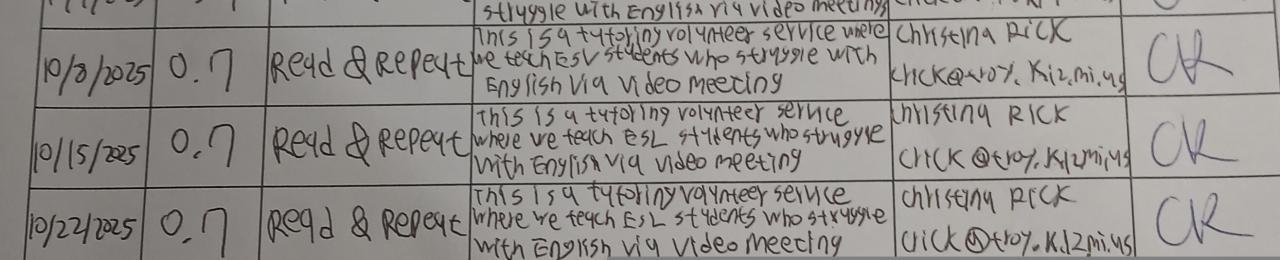 struggle with English via video meetings
10/8/2025 0.7 Read & Repeat This is a tutoring volunteer service where Christina Rick CR
we teach ESV students who struggle with
English via video meeting crick@troy.k12.mi.us
10/15/2025 0.7 Read & Repeat This is a tutoring volunteer service Christina Rick CR
where we teach ESL students who struggle
with English via video meeting crick@troy.k12mi.us
10/22/2025 0.7 Read & Repeat This is a tutoring volunteer service Christina Rick CR
where we teach ESL students who struggle
with English via video meeting crick@troy.k12mi.us